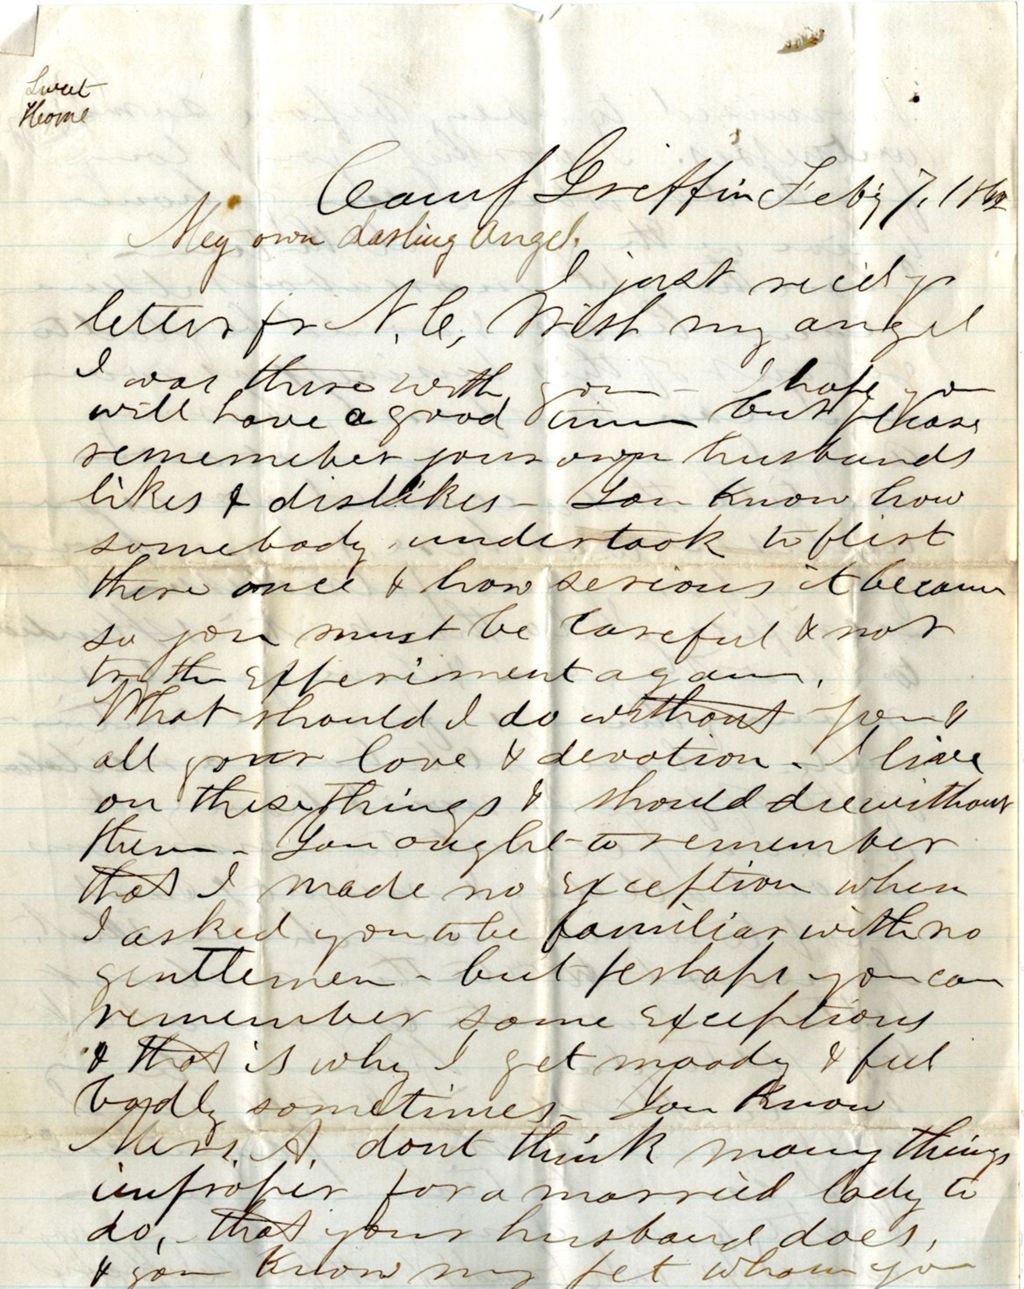 Sweet
Home
Camp Griffin Feby 7, 1862
My own darling Angel.
I just recd yr
letter fr N. C, Wish my angel
I was there with you - I hope you
will have a good time but please
rememeber your own husbands
likes & dislikes - You Know how
somebody undertook to flirt
there once & how serious it became
so you must be careful & not
try the Experiment again.
What should I do without you &
all your love & devotion. I live
on these things & should die without
them - You ought to remember
that I made no exception when
I asked you to be familiar with no
gentlemen - but perhaps you can
remember some exceptions
& that is why I get moody & feel
badly sometimes - You Know
Mrs. A. dont think many things
improper for a married lady to
do, that your husband does,
& you Know my pet whom you